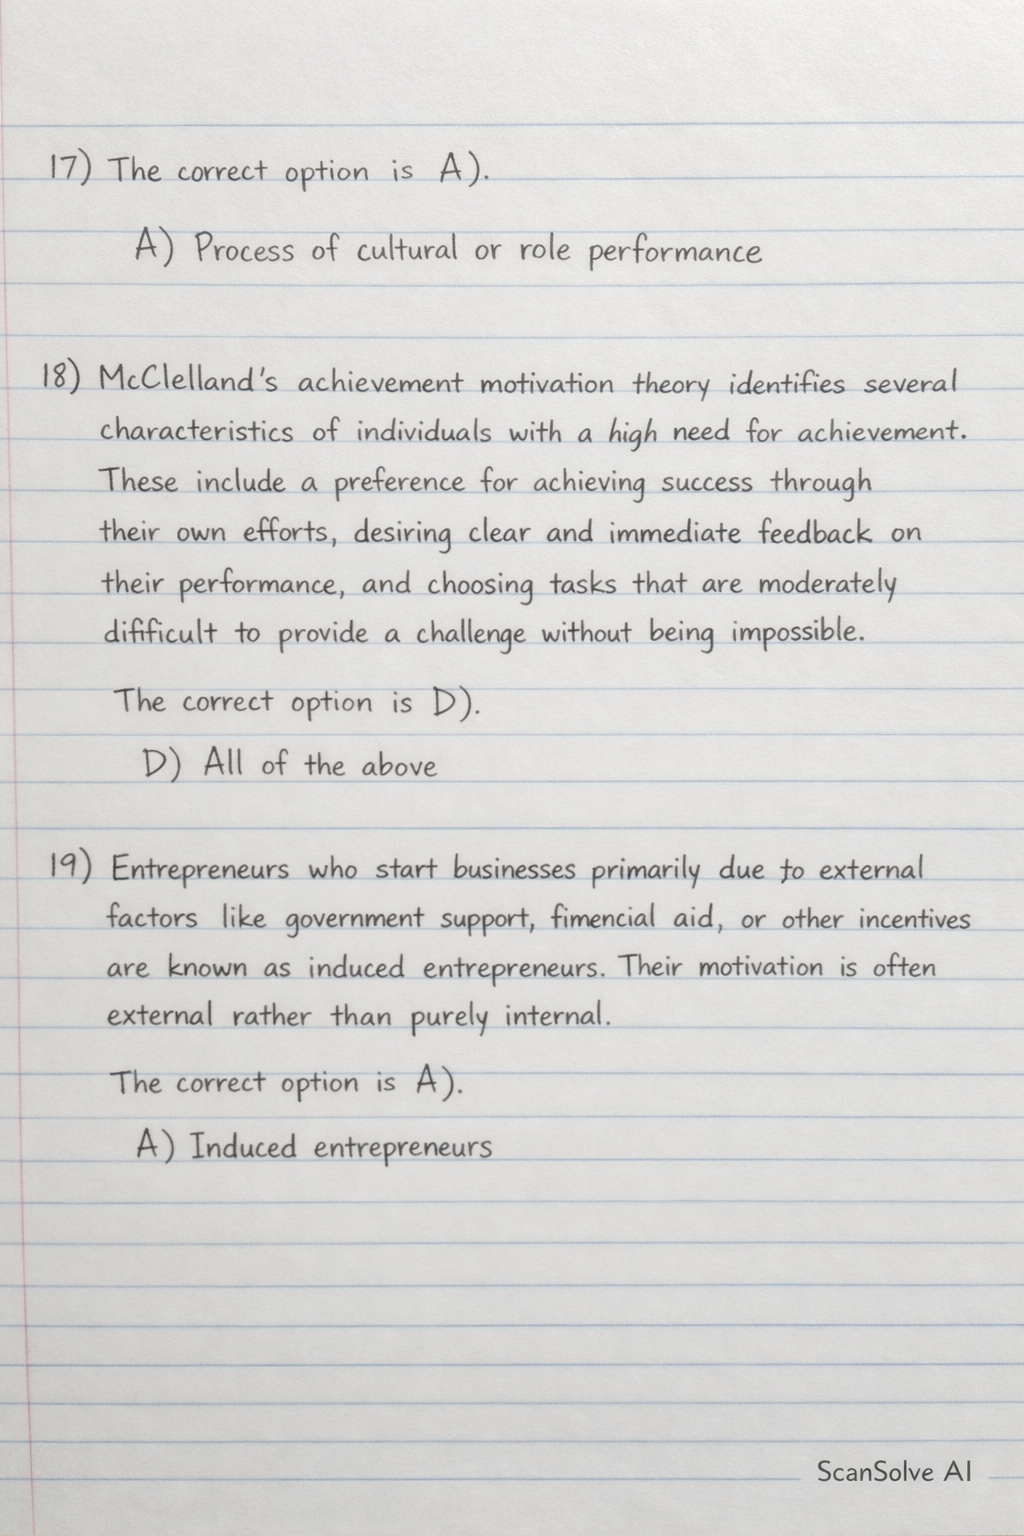 17) The correct option is A).
A) Process of cultural or role performance
18) McClelland's achievement motivation theory identifies several
characteristics of individuals with a high need for achievement.
These include a preference for achieving success through
their own efforts, desiring clear and immediate feedback on
their performance, and choosing tasks that are moderately
difificult to provide a challenge without being impossible.
The correct option is D).
D) All of the above
19) Entrepreneurs who start businesses primarily due to external
factors like government support, fimencial aid, or other incentives
are known as induced entrepreneurs. Their motivation is often
external rather than purely internal.
The correct option is A).
A) Induced entrepreneurs
ScanSolve AI